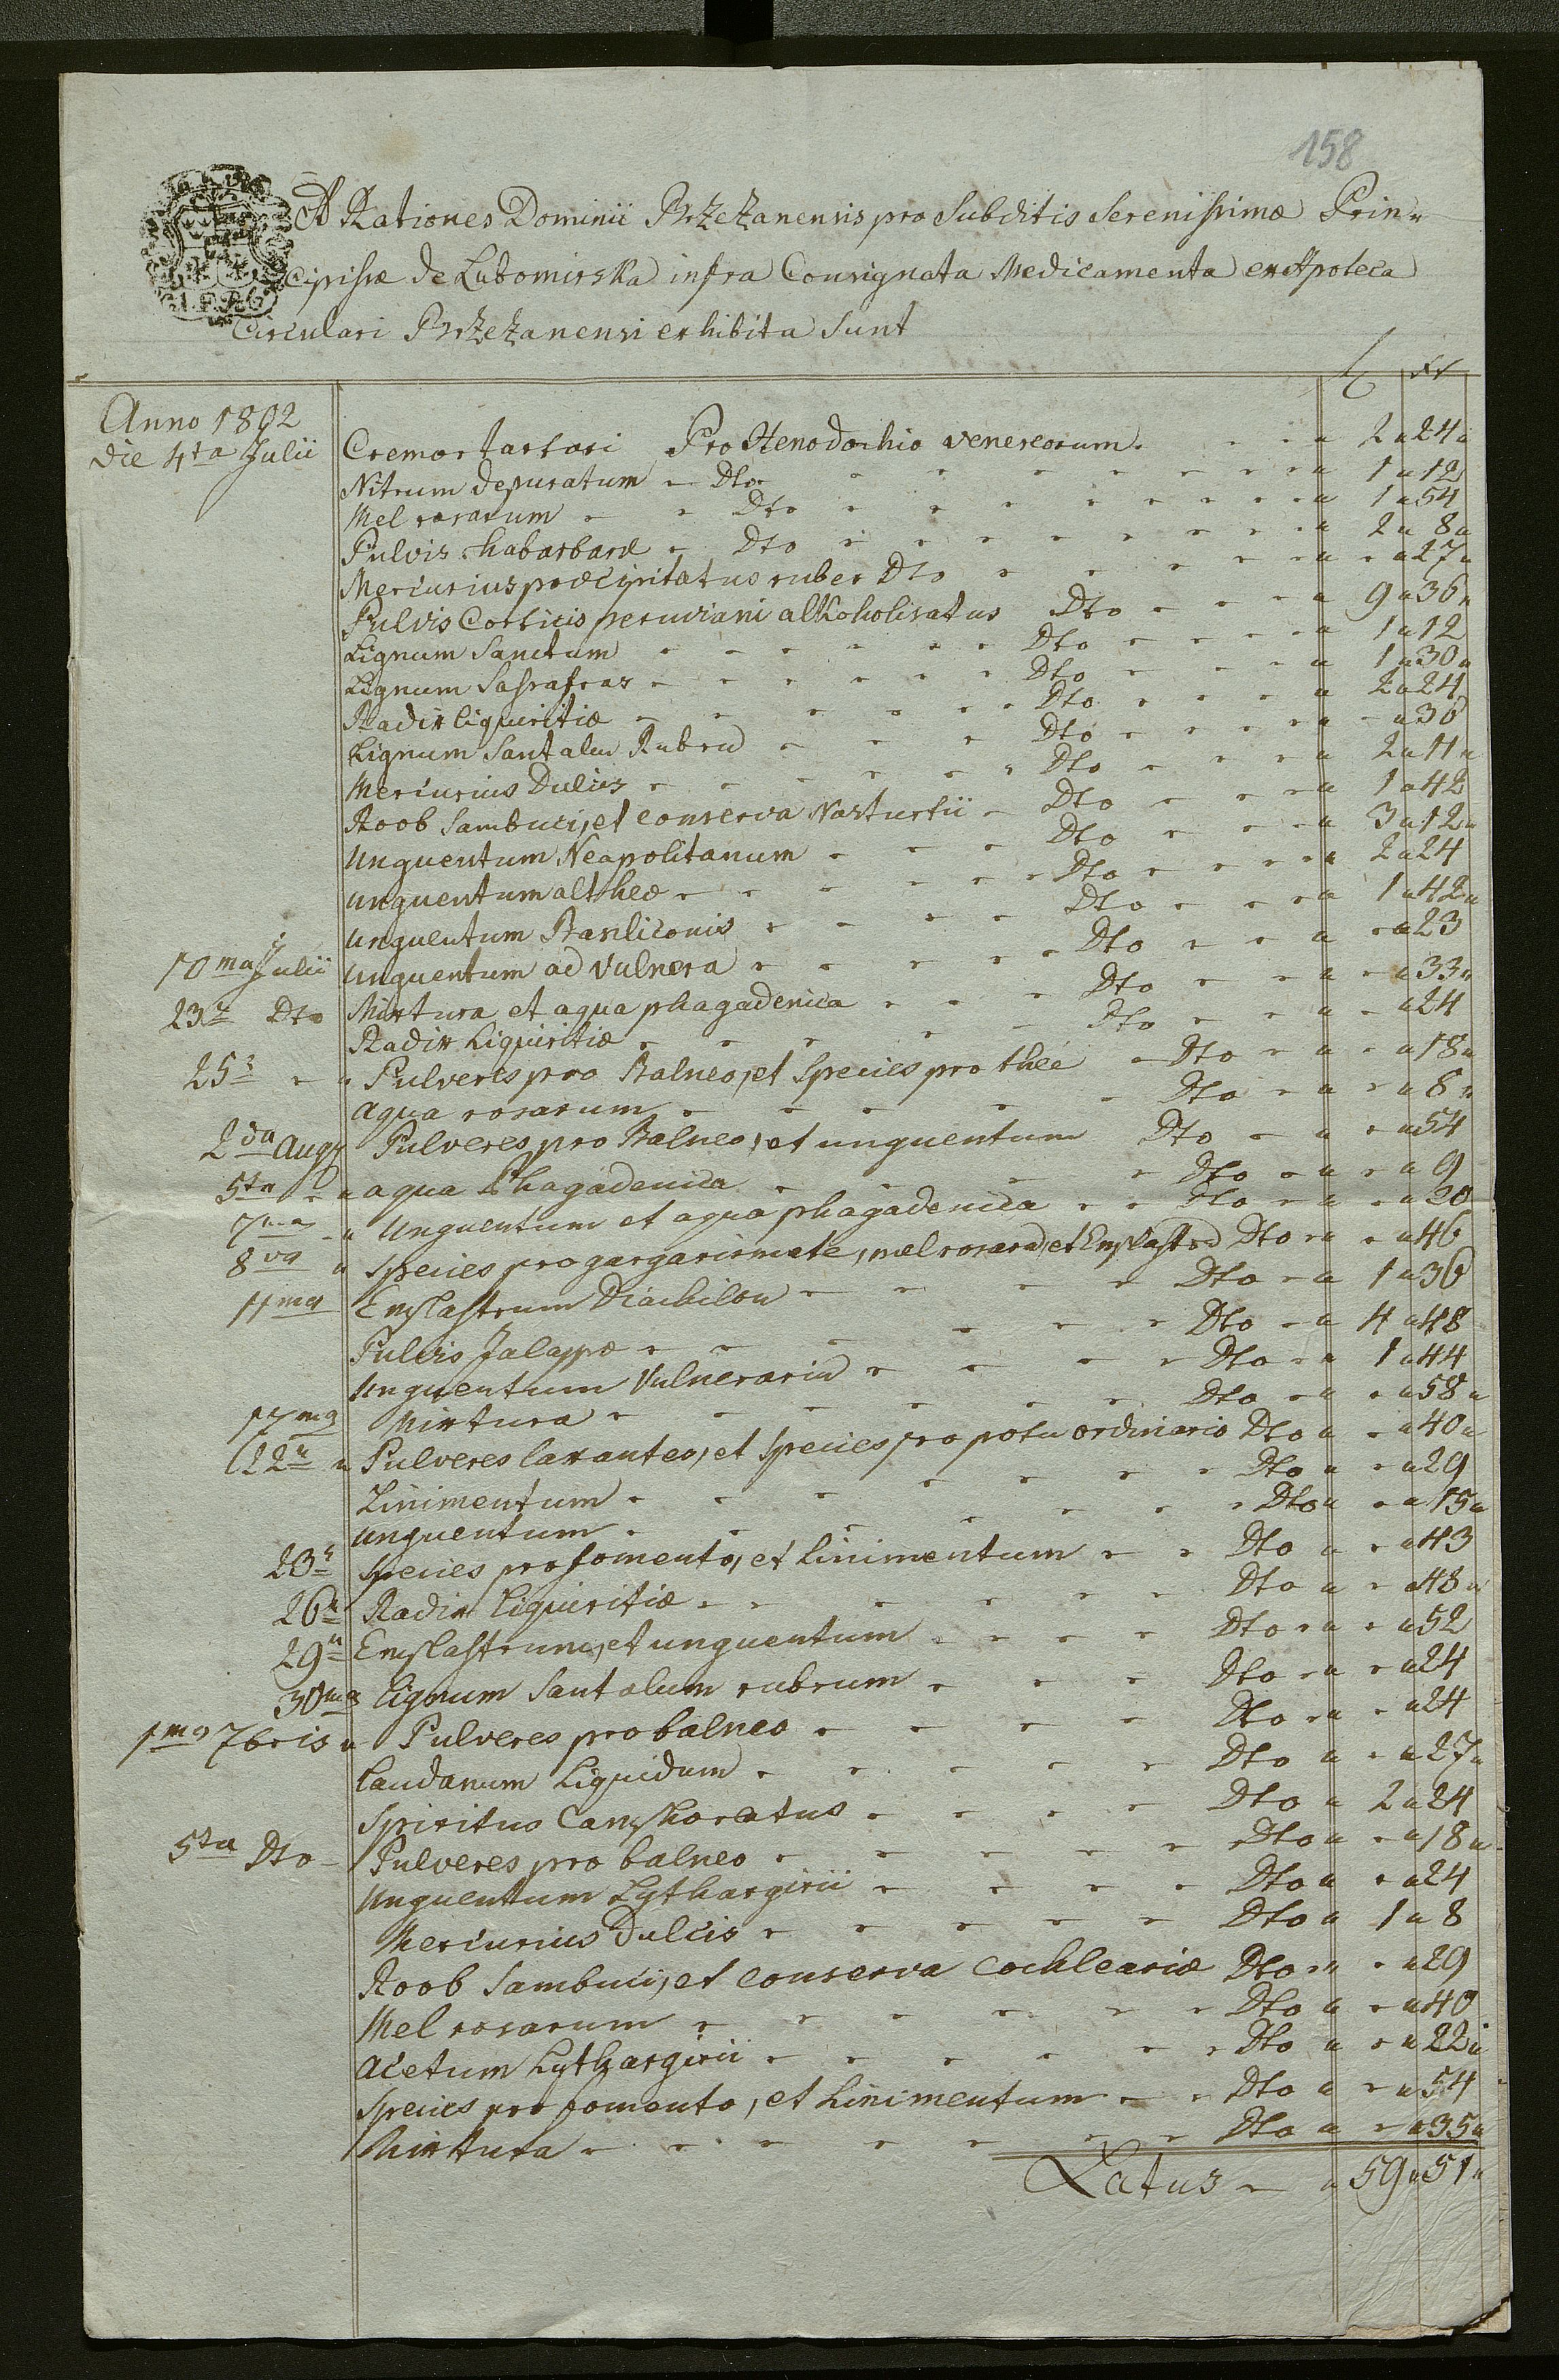 158
A Rationes Dominii Brzeżanensis pro Subditis Serenissimæ Prin-
cipissæ de Lubomirska infra Consignata Medicamenta ex Apoteca
Circulari Brzeżanensi exhibita Sunt
f xr
Anno 1802
Die 4ta Julii Cremor tartari Pro Xenodochio venereorum. 2 24
Nitrum depuratum Dto 1 12
Mel rosarum Dto 1 54
Pulvis rhabarbaræ Dto 2 8
Mercurius præcipitatus ruber Dto 27
Pulvis Corticis peruviani alkoholisatus Dto 9 36
Lignum Sanctum Dto 1 12
Lignum Sassafras Dto 1 30
Radix liquiritiæ Dto 2 24
Lignum Santalu Rubru Dto 36
Mercurius Dulcis Dto 2 11
Roob Sambuci, et conserva Nasturtii Dto 1 42
Unguentum Neapolitanum Dto 3 12
Unguentum altheæ Dto 2 24
Unguentum Basiliconis Dto 1 42
10ma Julii Unguentum ad Vulnera Dto 23
23a Dto Mixtura et aqua phagadenica Dto 33
Radix Liquiritiæ Dto 24
25a Pulveres pro Balneo, et Species pro thee Dto 18
aqua rosarum Dto 8
2da Aug Pulveres pro Balneo, et unguentum Dto 54
5ta aqua Phagadenica Dto 9
7ma Unguentum et aqua phagadenica Dto 20
8va Species pro gargarismate, mel rosaru, et Emplastru Dto 46
11ma Emplastrum Diachilon Dto 1 36
Pulvis Jalappæ Dto 4 48
Unguentum Vulnerariu Dto 1 44
17ma Mixtura Dto 58
22a Pulveres laxantes, et Species pro potu ordinario Dto 40
Linimentum Dto 29
unguentum Dto 15
23a Species pro fomento, et linimentum Dto 43
26a Radix Liquiritiæ Dto 48
29a Emplastrum, et unguentum Dto 52
30ma Lignum Santalum rubrum Dto 24
1ma 7bris Pulveres pro balneo Dto 24
Laudanum Liquidum Dto 27
Spiritus Camphoratus Dto 2 24
5ta Dto Pulveres pro balneo Dto 18
Unguentum Lythargirii Dto 24
Mercurius Dulcis Dto 1 8
Roob Sambuci, et conserva Cochleariæ Dto 29
Mel rosarum Dto 40
Acetum Lythargirii Dto 22
Species pro fomento, et Linimentum Dto 54
Mixtura Dto 35
Latus 59 51